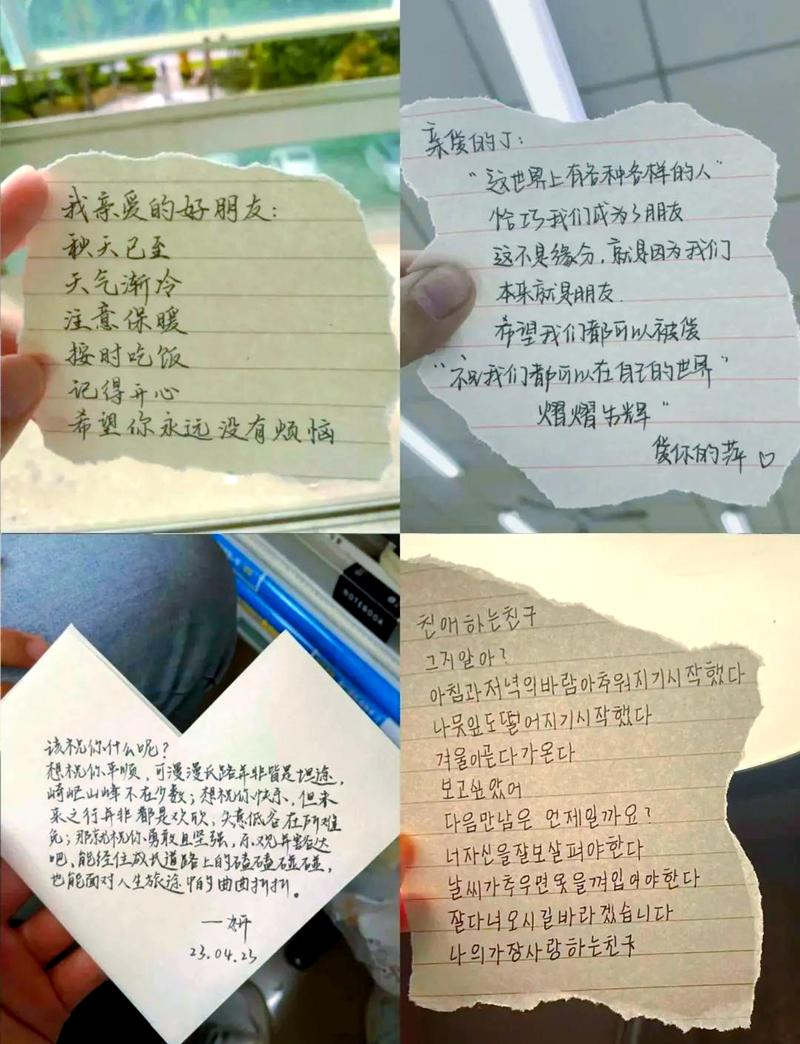 我亲爱的好朋友:
秋天已至
天气渐冷
注意保暖
按时吃饭
记得开心
希望你永远没有烦恼
亲爱的J:
"这世界上有各种各样的人"
恰巧我们成为了朋友
这不是缘分,就是因为我们
本来就是朋友.
希望我们都可以被爱
"祝我们都可以在自己的世界"
熠熠生辉"
爱你的萍♡
NOTEBOOK
该祝你什么呢?
想祝你平顺,可漫漫长路并非皆是坦途,
崎岖山峰不在少数;想祝你快乐,但未
来之行并非都是欢欣,失意低谷在所难
免;那就祝你勇敢且坚强,乐观并豁达
吧、能经住成长道路上的磕磕碰碰,
也能面对人生旅途中的曲曲折折。
一妍
23.04.23
친애하는친구
그거알아?
아침과저녁의바람아추워지기시작했다
나뭇잎도떨어지기시작했다
겨울이곧다가온다
보고싶았어
다음만남은 언제일까요?
너자신을잘보살펴야한다
날씨가추우면옷을껴입어야한다
잘다녀오시길바라겠습니다
나의가장사랑하는친구